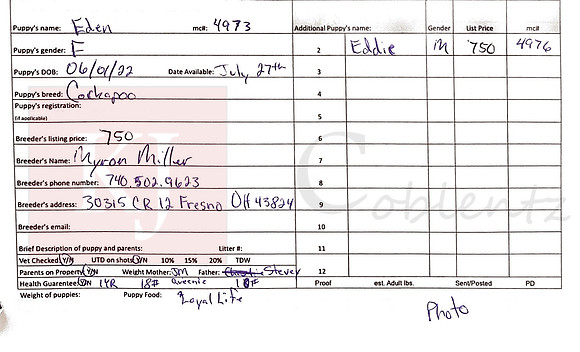 Puppy's name: Eden mc#: 4973 Additional Puppy's name: Gender List Price mc#
Puppy's gender: F 2 Eddie M 750 4976
Puppy's DOB: 06/01/22 Date Available: July 27th 3
Puppy's breed: Cockapoo 4
Puppy's registration:
(if applicable) 5
Breeder's listing price: 750 6
Breeder's Name: Myron Miller 7
Breeder's phone number: 740.502.9623 8
Breeder's address: 30315 CR 12 Fresno OH 43824 9
Breeder's email: 10
Brief Description of puppy and parents: Litter #: 11
Vet Checked Y/N UTD on shots Y/N 10% 15% 20% TDW
Parents on Property Y/N Weight Mother: JM Father: Steve 12
Health Guarentee Y/N 1YR 18# Queenie 18# Proof est. Adult lbs. Sent/Posted PD
Weight of puppies: Puppy Food: Loyal Life
Photo
Coblentz